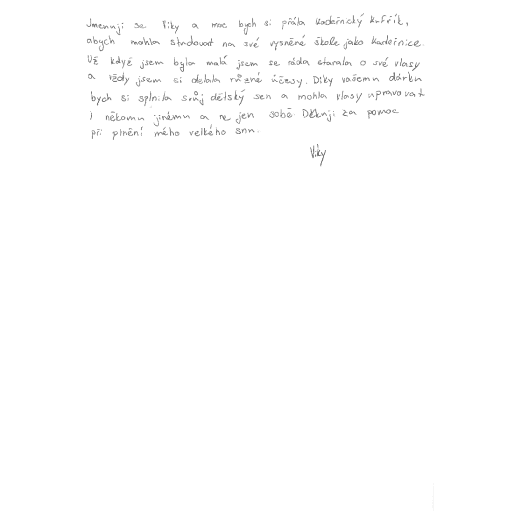 Jmenuji se Viky a moc bych si přála kadeřnický kufřík,
abych mohla studovat na své vysněné škole jako kadeřnice.
Už když jsem byla malá jsem se ráda starala o své vlasy
a vždy jsem si dělala různé účesy. Díky vašemu dárku
bych si splnila svůj dětský sen a mohla vlasy upravovat
i někomu jinému a ne jen sobě. Děkuji za pomoc
při plnění mého velkého snu.
Viky